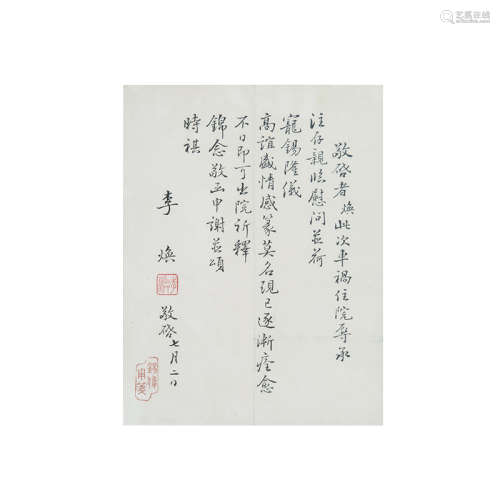 敬啓者煥此次車禍住院辱承
注存親臨慰問並荷
寵錫隆儀
高誼盛情感篆莫名現已逐漸痊愈
不日即可出院祈釋
錦念敬函申謝並頌
時祺
李煥
敬啓七月二日
艺狐在线
artfoxlive.com